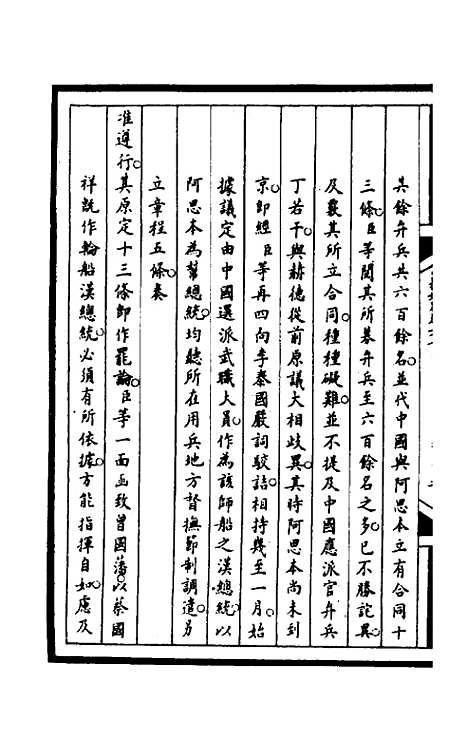 其餘弁兵共六百餘名。並代中國與阿思本立有合同十
三條。臣等聞其所募弁兵至六百餘名之多。已不勝詫異。
及覈其所立合同。種種礙難。並不提及中國應派官弁兵
丁若干。與赫德從前原議大相歧異。其時阿思本尚未到
京。即經臣等再四向李泰國嚴詞駮詰。相持幾至一月。始
據議定由中國選派武職大員。作為該師船之漢總統。以
阿思本為幫總統。均聽所在用兵地方督撫節制調遣。另
立章程五條。奏
准遵行。其原定十三條即作罷論。臣等一面函致曾國藩。以蔡國
祥既作輪船漢總統。必須有所依據。方能指揮自如。慮及